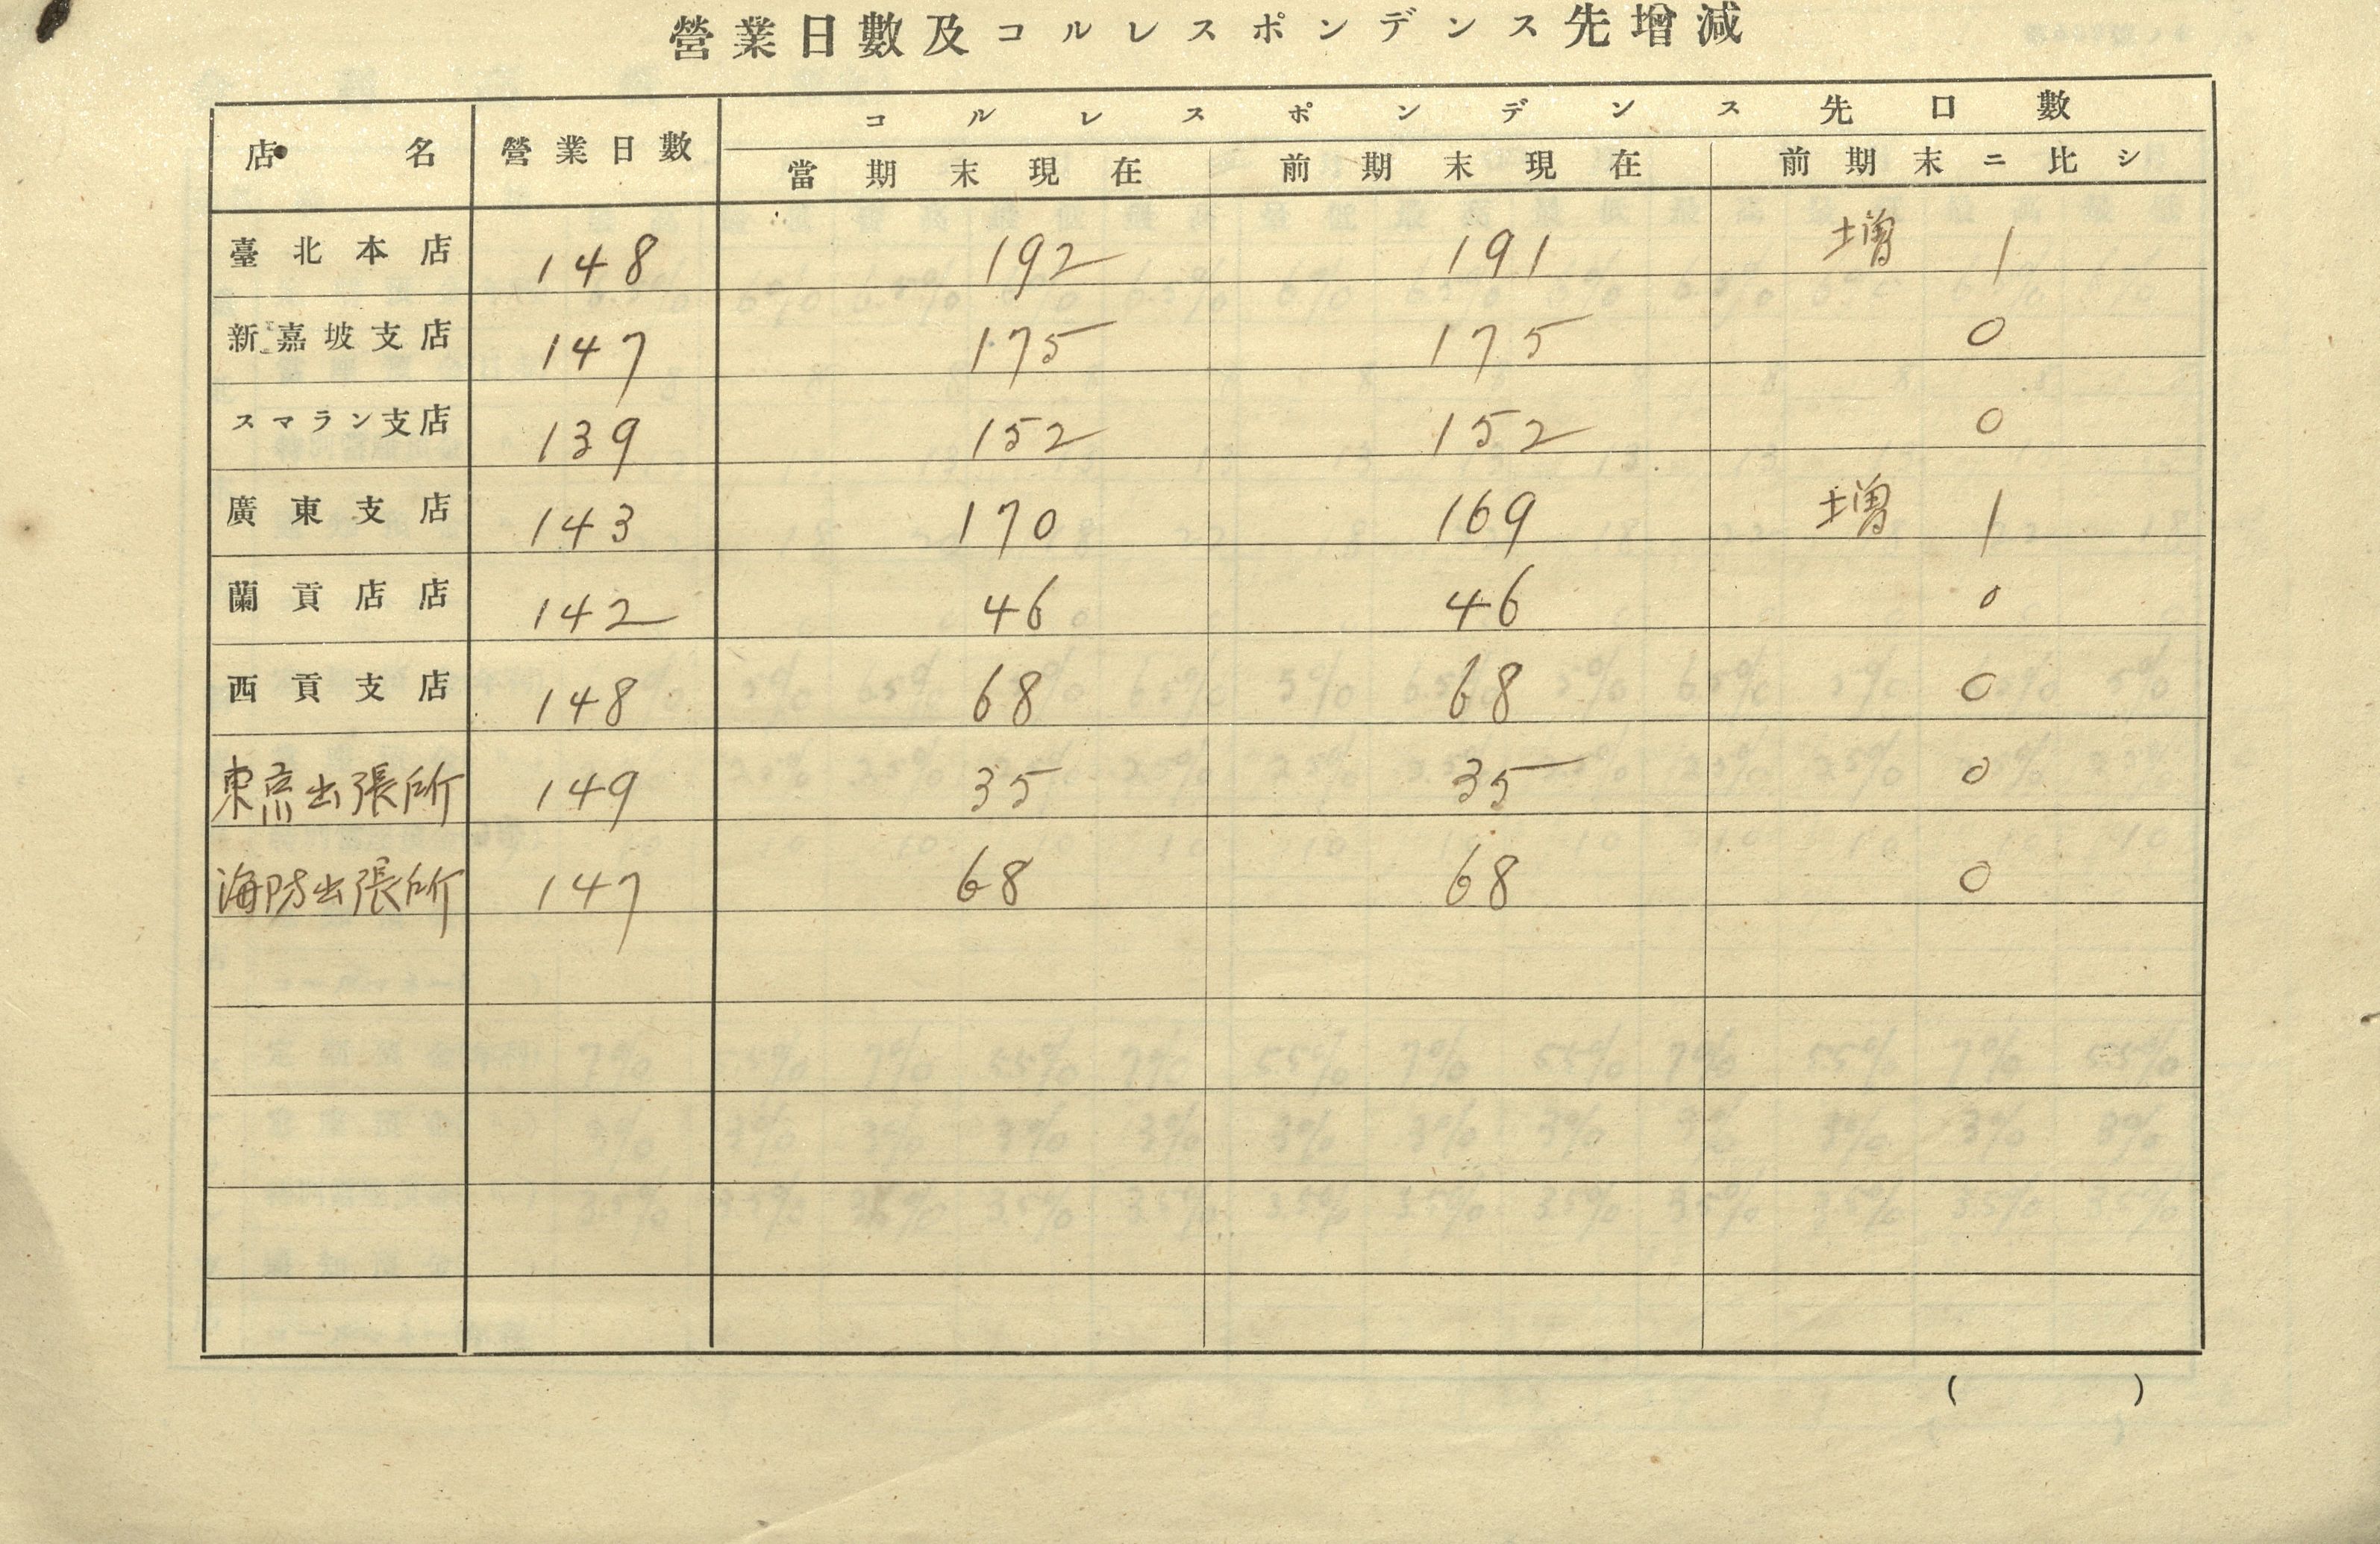 營業日數及コルレスポンデンス先增減
店名 營業日數 コルレスポンデンス先口數
當期末現在 前期末現在 前期末ニ比シ
臺北本店 148 192 191 增 1
新嘉坡支店 147 175 175 0
スマラン支店 139 152 152 0
廣東支店 143 170 169 增 1
蘭貢店店 142 46 46 0
西貢支店 148 68 68 0
東京出張所 149 35 35 0
海防出張所 147 68 68 0
( )